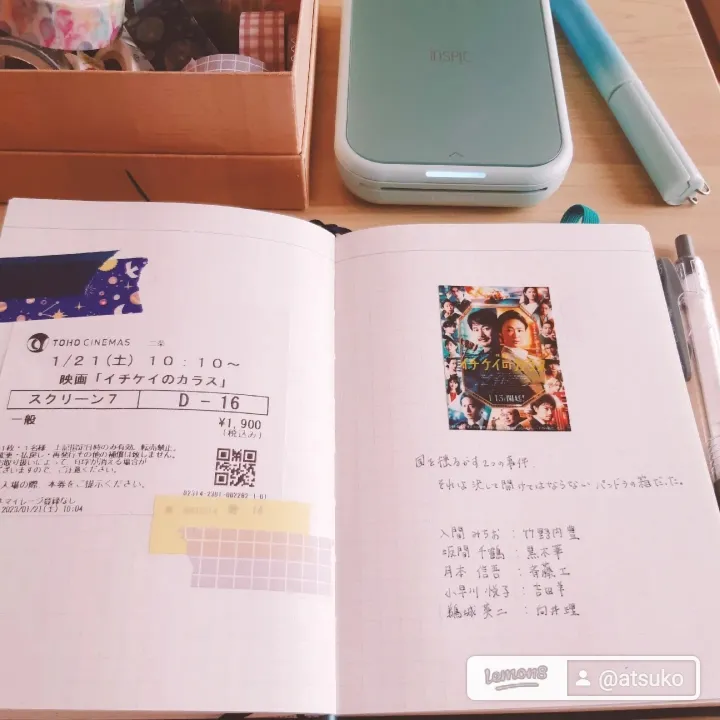 INSPiC
TOHO CINEMAS 二条
1/21(土) 10:10～
映画「イチケイのカラス」
スクリーン7 D-16
一般
¥1,900
(税込み)
入場の際、本券をご提示ください。
2023/01/21(土) 10:04
イチケイのカラス
1.13 開廷!
国を揺るがす2つの事件
それは決して開けてはならないパンドラの箱だった。
入間 みちお : 竹野内豊
坂間 千鶴 : 黒木華
月本 信吾 : 斎藤工
小早川 悦子 : 吉田羊
鵜城 英二 : 向井理
lemon8
@atsuko